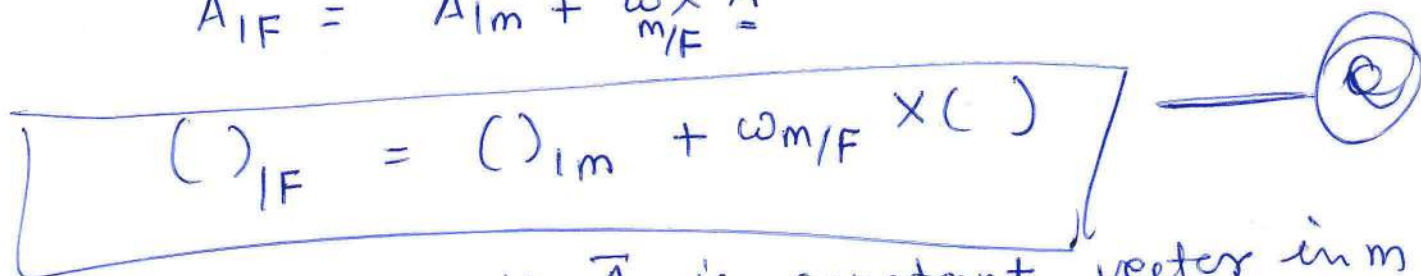 A|F = A|m + ω m/F ×
( )|F = ( )|m + ω m/F × ( )
Ā is constant vector in m